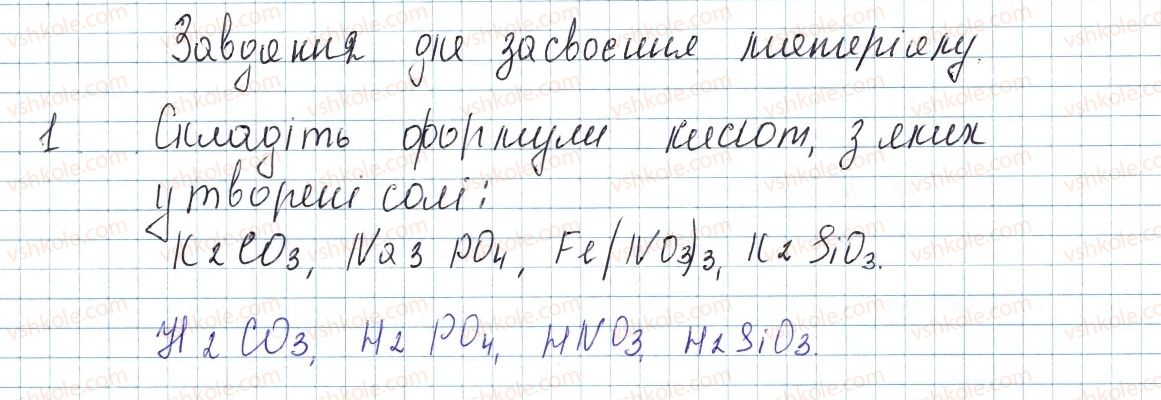 Завдання для засвоєння матеріалу.
1 Складіть формули кислот, з яких
утворені солі:
K2CO3, Na3PO4, Fe(NO3)3, K2SiO3.
H2CO3, H2PO4, HNO3, H2SiO3.